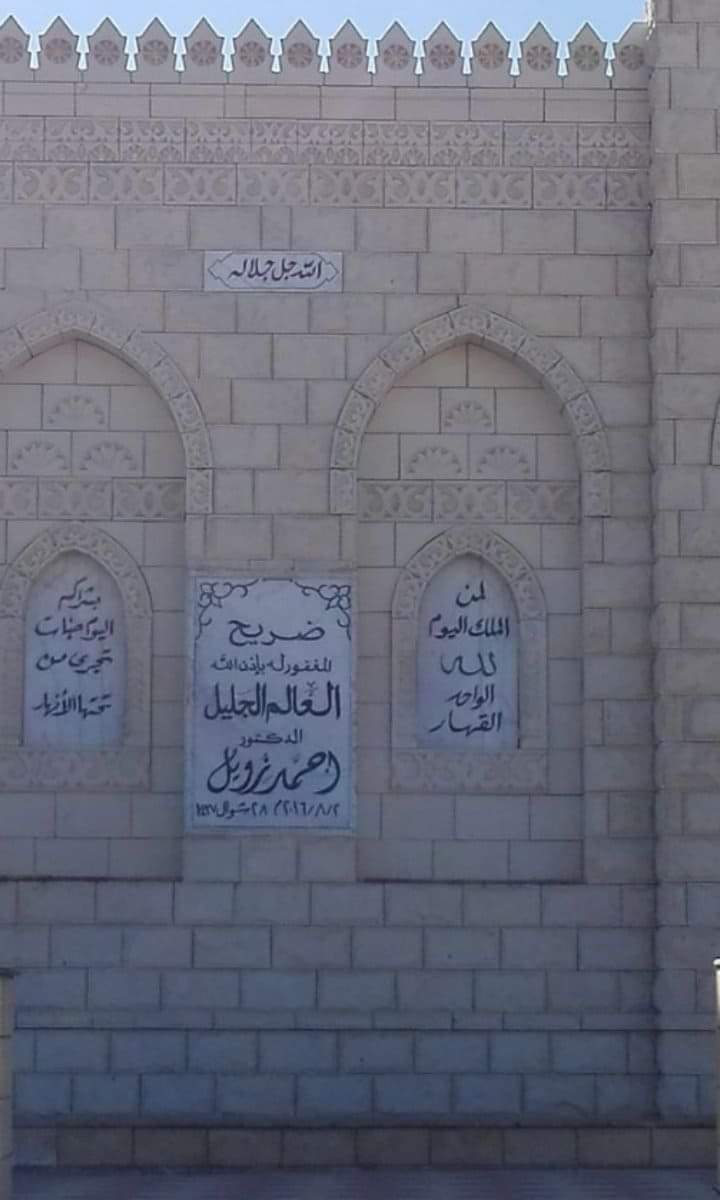 الله جل جلاله
لمن
الملك اليوم
لله
الواحد
القهار
ضريح
المغفور له بإذن الله
العالم الجليل
الدكتور
احمد زويل
٢/٨/٢٠١٦م ٢٨ شوال ١٤٣٧
بشراكم
اليوم جنات
تجرى من
تحتها الأنهار